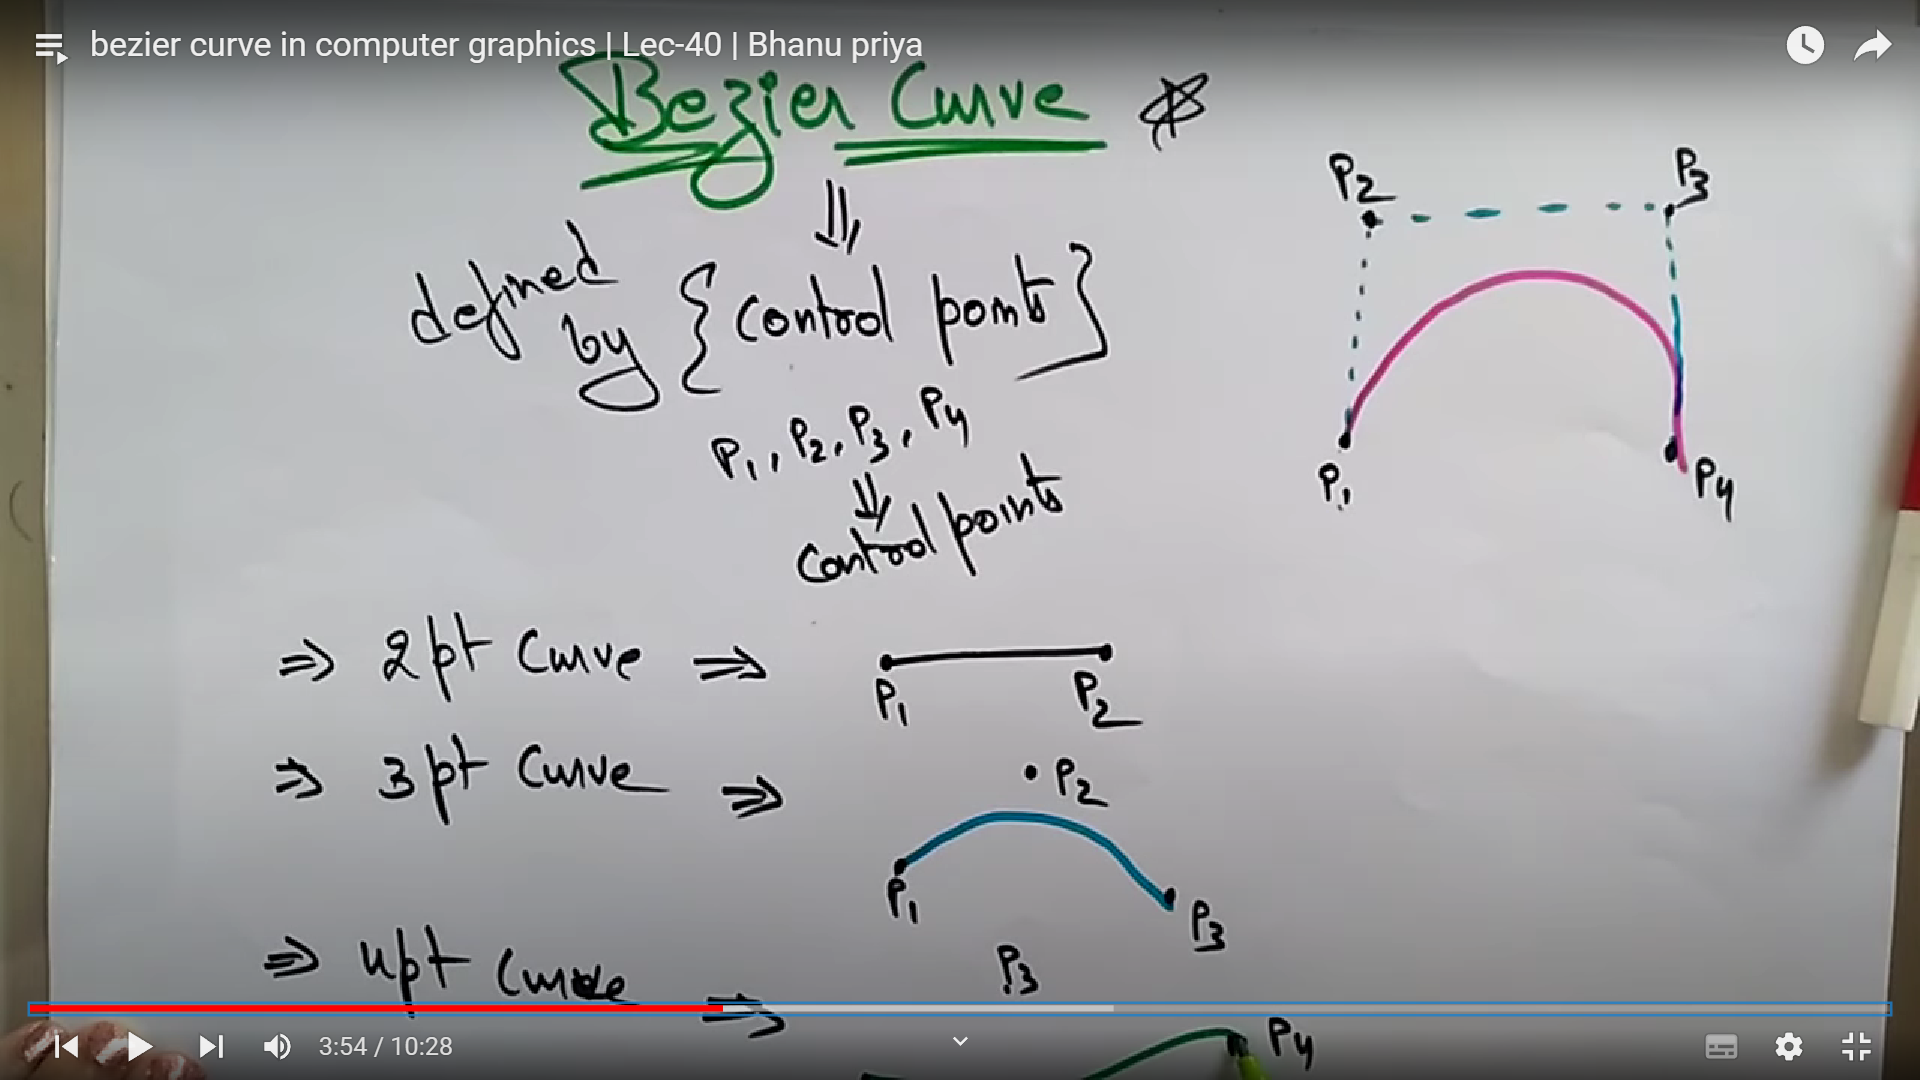 bezier curve in computer graphics | Lec-40 | Bhanu priya
Bezier Curve
defined by { control points }
P1, P2, P3, P4
control points
P2
P3
P1
P4
⇒ 2pt Curve ⇒
P1
P2
⇒ 3pt Curve ⇒
P2
P1
P3
⇒ 4pt Curve ⇒
P3
P4
3:54 / 10:28